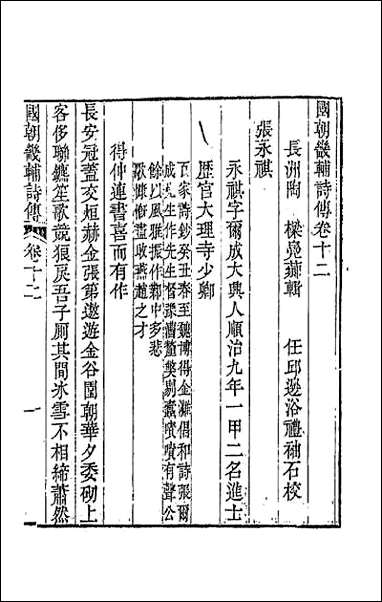 國朝畿輔詩傳卷十二
長洲陶 樑鳧薌輯 任邱邊浴禮袖石校
張永祺
永祺字爾成大興人順治九年一甲二名進士
歷官大理寺少卿
百家詩鈔癸丑春至魏博得金灘倡和詩張爾
成先生作先生督課漕艘剔蠹嘖有聲公
餘以風雅振作郡中多悲
歌慷慨盡收燕趙之才
得仲連書喜而有作
長安冠蓋交烜赫金張第遨遊金谷園朝華夕委砌上
客侈聯鑣笙歌競狼戾吾子廁其間冰雪不相締蕭然
國朝畿輔詩傳 卷十二 一